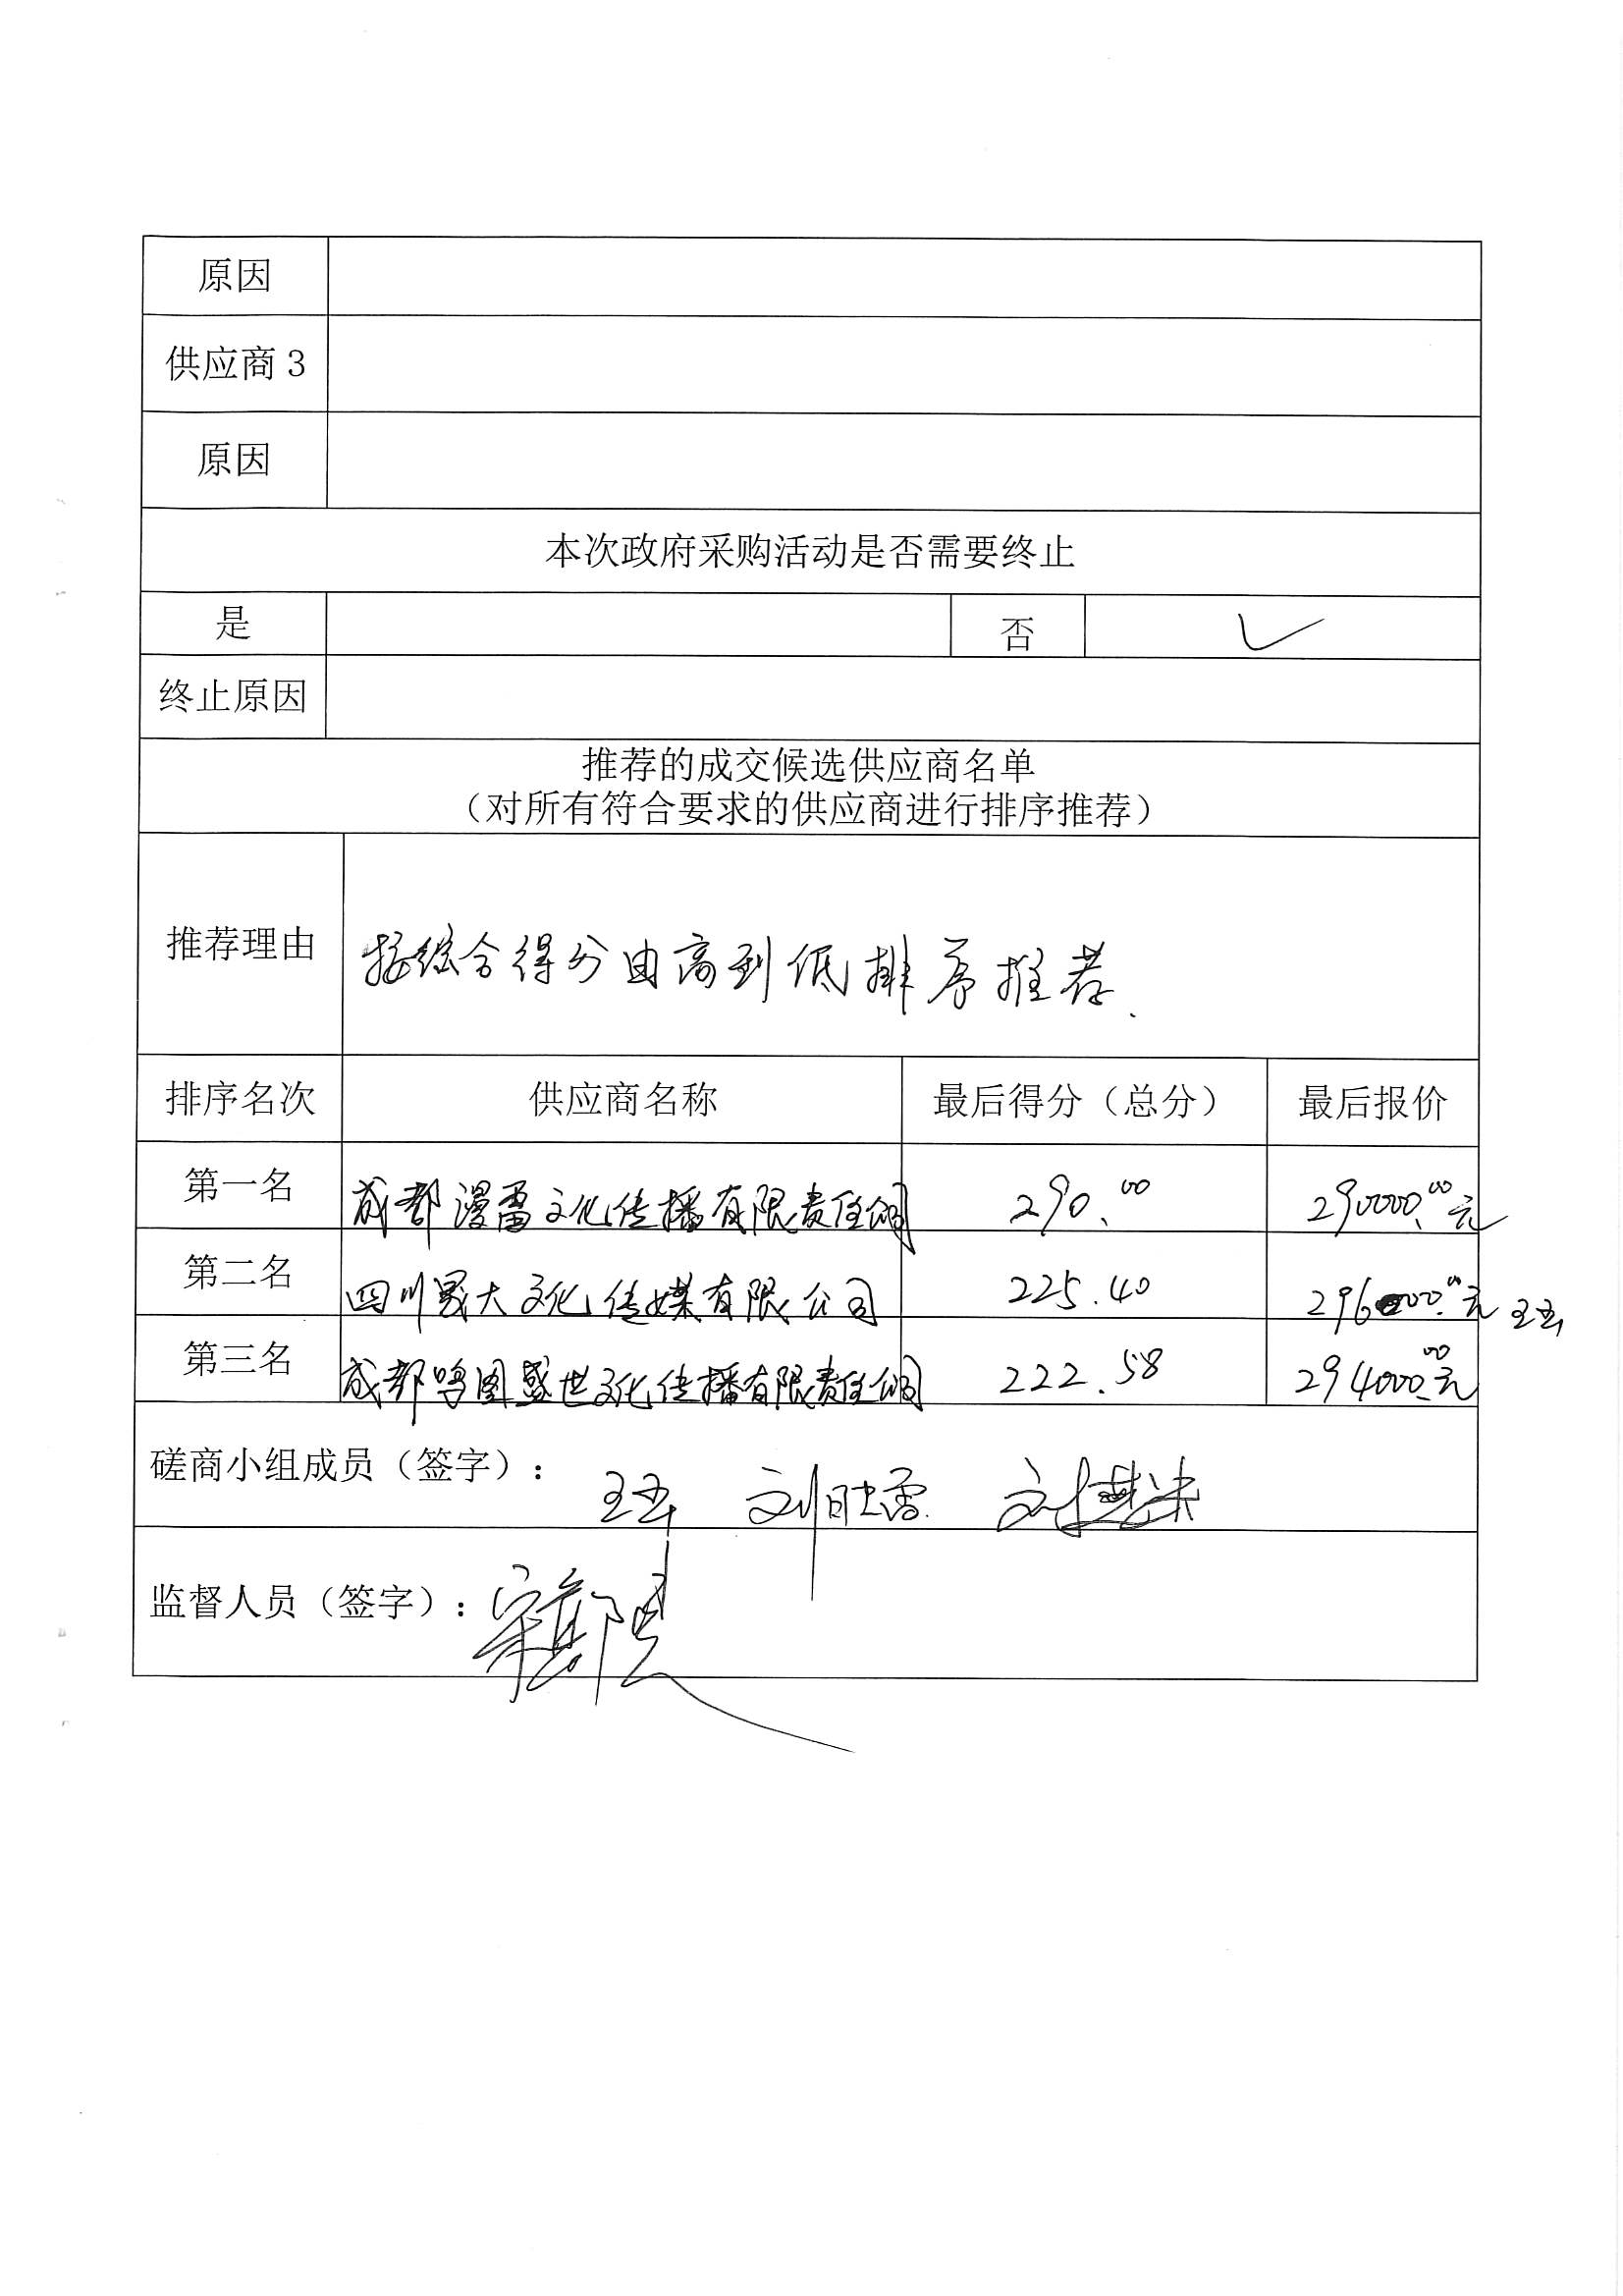 原因
供应商 3
原因
本次政府采购活动是否需要终止
是 否 ✓
终止原因
推荐的成交候选供应商名单
（对所有符合要求的供应商进行排序推荐）
推荐理由 按综合得分由高到低排序推荐.
排序名次 供应商名称 最后得分（总分） 最后报价
第一名 成都漫雷文化传播有限责任公司 290.00 290000.00元
第二名 四川晟大文化传媒有限公司 225.40 296000.00元
第三名 成都鸣图盛世文化传播有限责任公司 222.58 294000.00元
磋商小组成员（签字）：
监督人员（签字）：